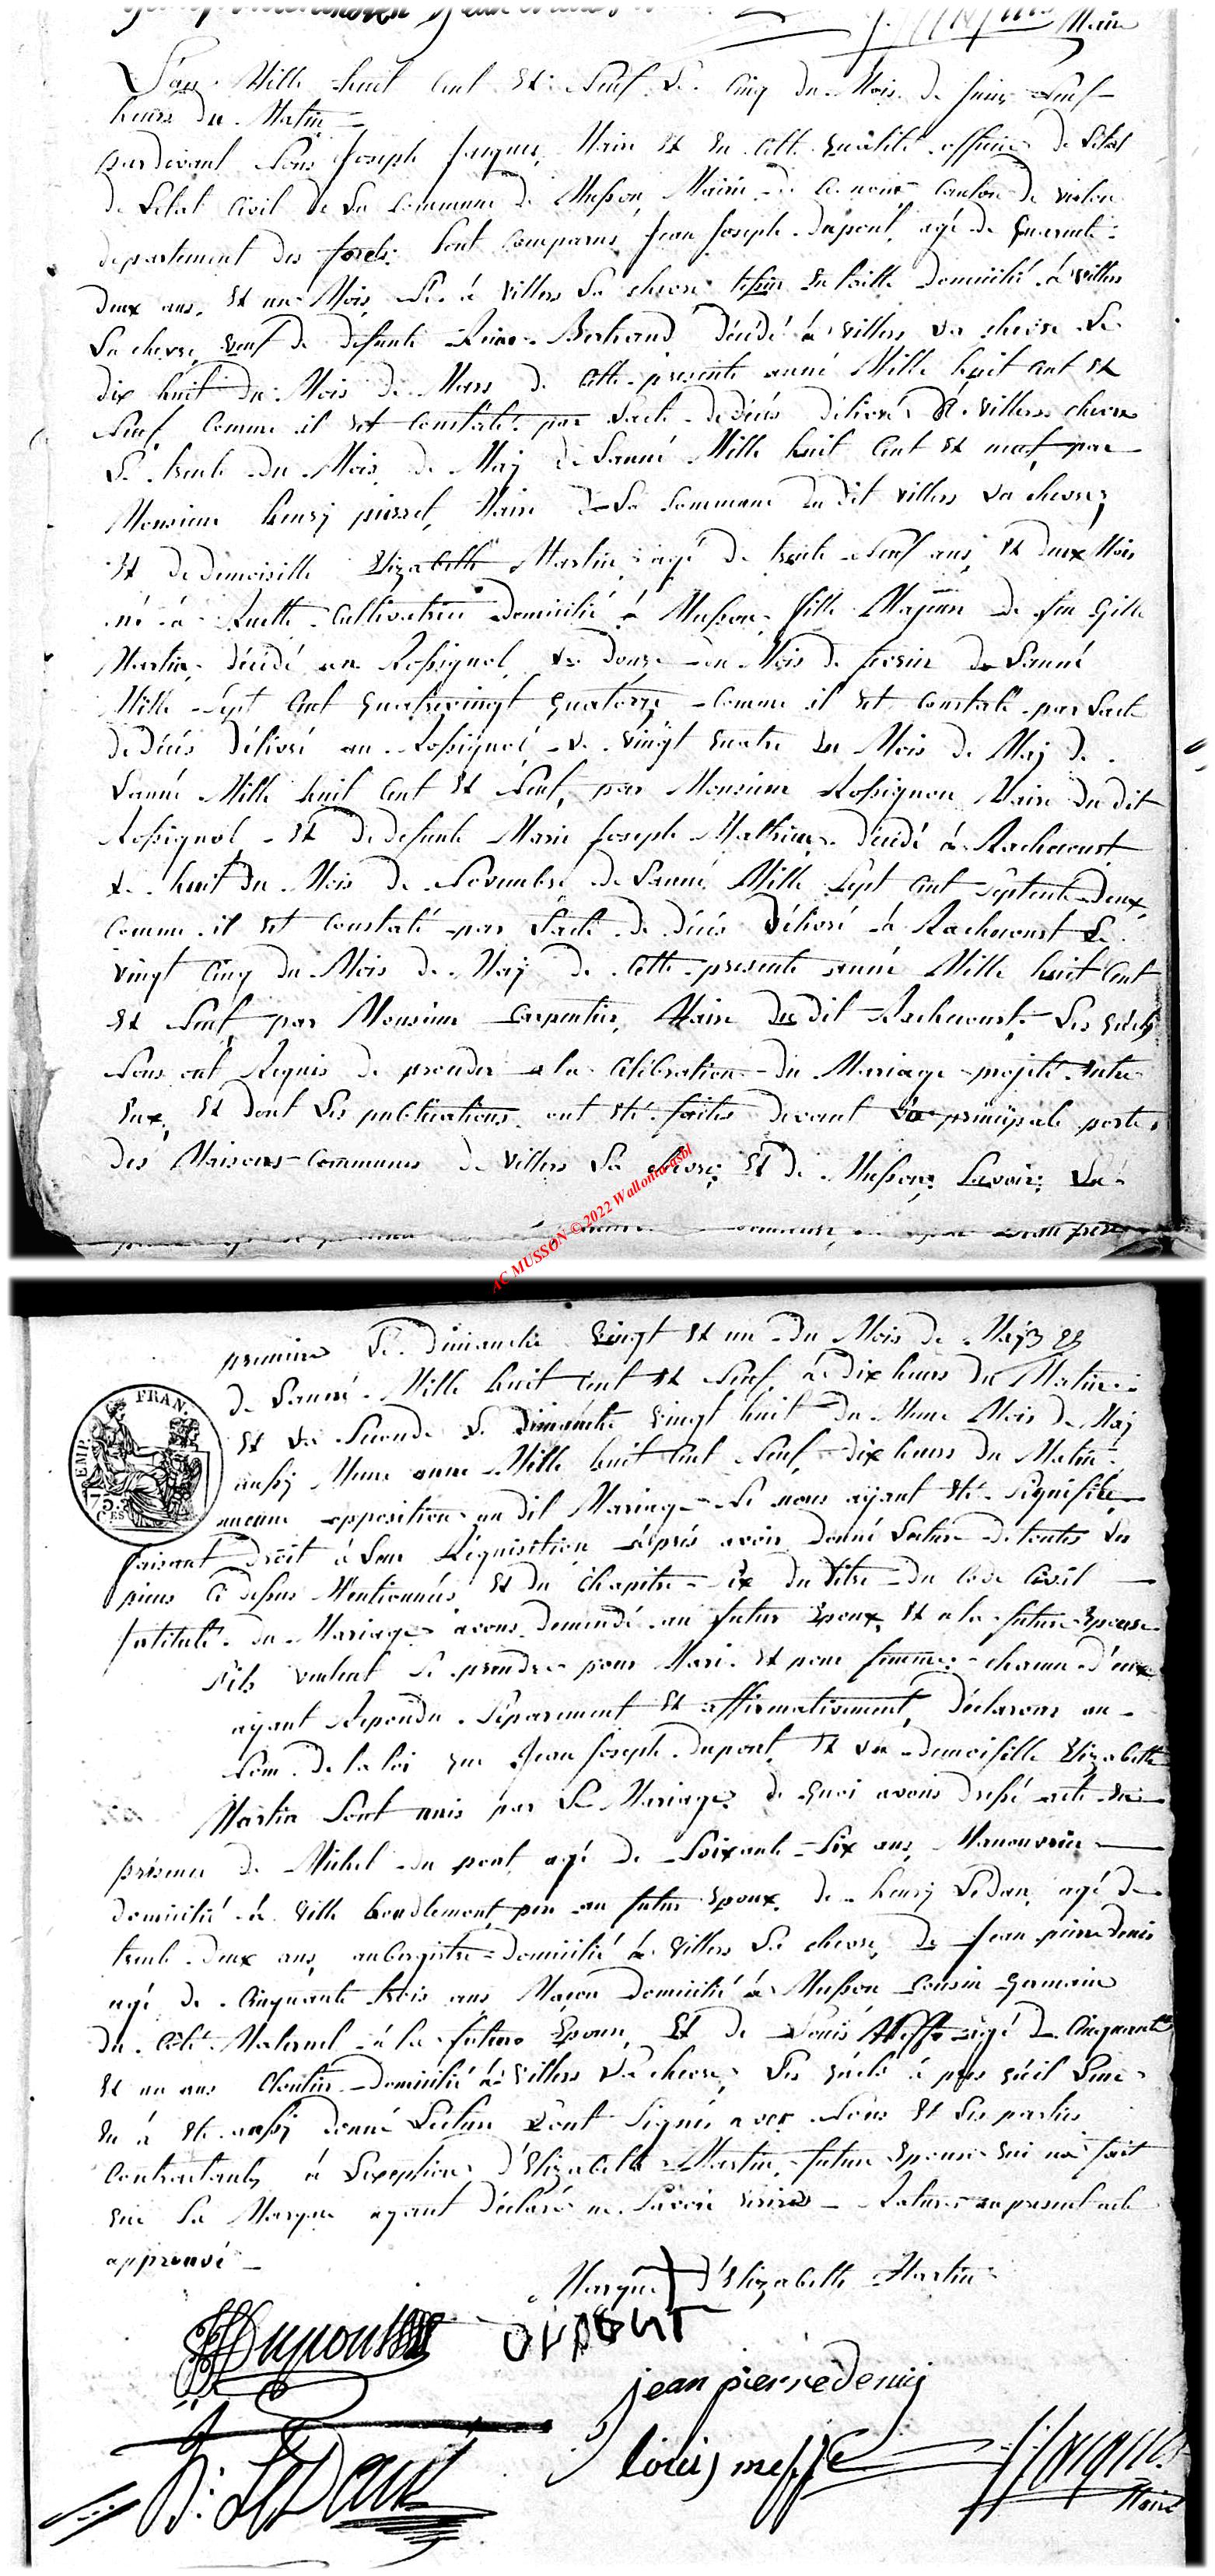 Maire
L'an Mille huit Cent Et Neuf Le Cinq du Mois de Juin Neuf
heures du Matin
pardevant Nous Joseph Jacques, Maire Et En Cette quâlité officier de L'état
de L'etat Civil de La Commune de Musson, Mairie de Ce nom Canton de virton
departement des forets: Sont Comparus Jean Joseph dupont, agé de quarente
deux ans, Et un Mois, Né à Villers La chevre Domicilié à villers
La chevre, veuf de defunte Bertrand décédé à villers La chevre Le
dix huit du Mois de Mars de Cette presente anné Mille huit Cent Et
Neuf, Comme il Est Constaté par L'acte de déces délivré à villers chevre
Le trente du Mois de Maj de L'anné Mille huit Cent Et neuf, par
Monsieur henrj pierret, Maire de La Commune du dit villers La chevre;
Et de demoiselle Elizabette Martin, agé de trente Neuf ans, Et deux Mois
né à Ruette Cultivatrice Domicilié à Musson, fille Majeure de feu Gille
Martin, décédé au Rossignol, Le douze du Mois de de L'anné
Mille Sept Cent quatrevingt quatorze Comme il Est Constaté par L'acte
de déces délivré au Rossignol Le vingt quatre du Mois de Maj de
L'anné Mille huit Cent Et Neuf, par Monsieur Rossignon Maire du dit
Rossignol Et de defunte Marie Joseph Mathieu, décédé à Rachecourt
Le huit du Mois de Novembre de L'anné Mille Sept Cent Septente deux,
Comme il Est Constaté par L'acte de déces délivré à Rachecourt Le
vingt Cinq du Mois de Maj de Cette presente anné Mille huit Cent
Et Neuf, par Monsieur Carpentier, Maire du dit Rachecourt. Les quels
Nous ont Requis de proceder a la Célébration du Mariage projeté Entre
Eux, Et dont Les publications ont Eté faites devant La principale porte
des Maisons Communes de Villers La chevre; Et de Musson; Savoir; La
AC MUSSON © 2022 Wallonia-asbl
premiere Le dimanche vingt Et un du Mois de Maj
de L'anné Mille huit Cent Et Neuf à dix heures du Matin
Et La Seconde Le dimanche vingt huit du Meme Mois de Maj
aussj Meme anné Mille huit Cent Neuf dix heures du Matin,
aucune opposition au dit Mariage Ne nous ayant Eté Signifiée
faisant droit à Leur Réquisition après avoir donné Lecture de toutes Les
pieces Ci dessus Mentionnées, Et du Chapitre Six du Titre du Code Civil
Intitulé du Mariage, avons demandé au futur Epoux, Et a la future Epouse
S'ils veulent Se prendre pour Mari Et pour femme; chacun d'eux
ayant Repondu Séparement Et affirmativement, déclarons au
Nom de la loi que Jean Joseph dupont, Et La demoiselle Elizabette
Martin Sont unis par Le Mariage; de quoi avons dressé acte En
présence de Michel du pont, agé de Soixante Six ans, Manouvrier
domicilié à ville houdlemont, pere au futur Epoux, de henrj Ledan, agé de
trente deux ans, aubergiste domicilié à villers La chevre, de Jean pierre Denis
agé de Cinquante trois ans Maçon Domicilié à Musson Cousin Germain
du Côté Maternel à la future Epouse, Et de Louis Meffe agé de Cinquante
Et un ans Cloutier Domicilié à villers La chevre, Les quels à pres qu'il Leur
En à Eté aussj donné Lecture L'ont Signés avec Nous Et Les parties
Contractants à L'exception d'Elizabette Martin, future Epouse qui n'a fait
que Sa Marque ayant déclaré ne Savoir Ecrire Rature au present acte
approuvé
FRAN.
EMP.
75.
CES
Marque d'Elizabette Martin
Dupont DUPONT
jean pierre denis
h: LeDan louis meffe J: Jacques
Maire